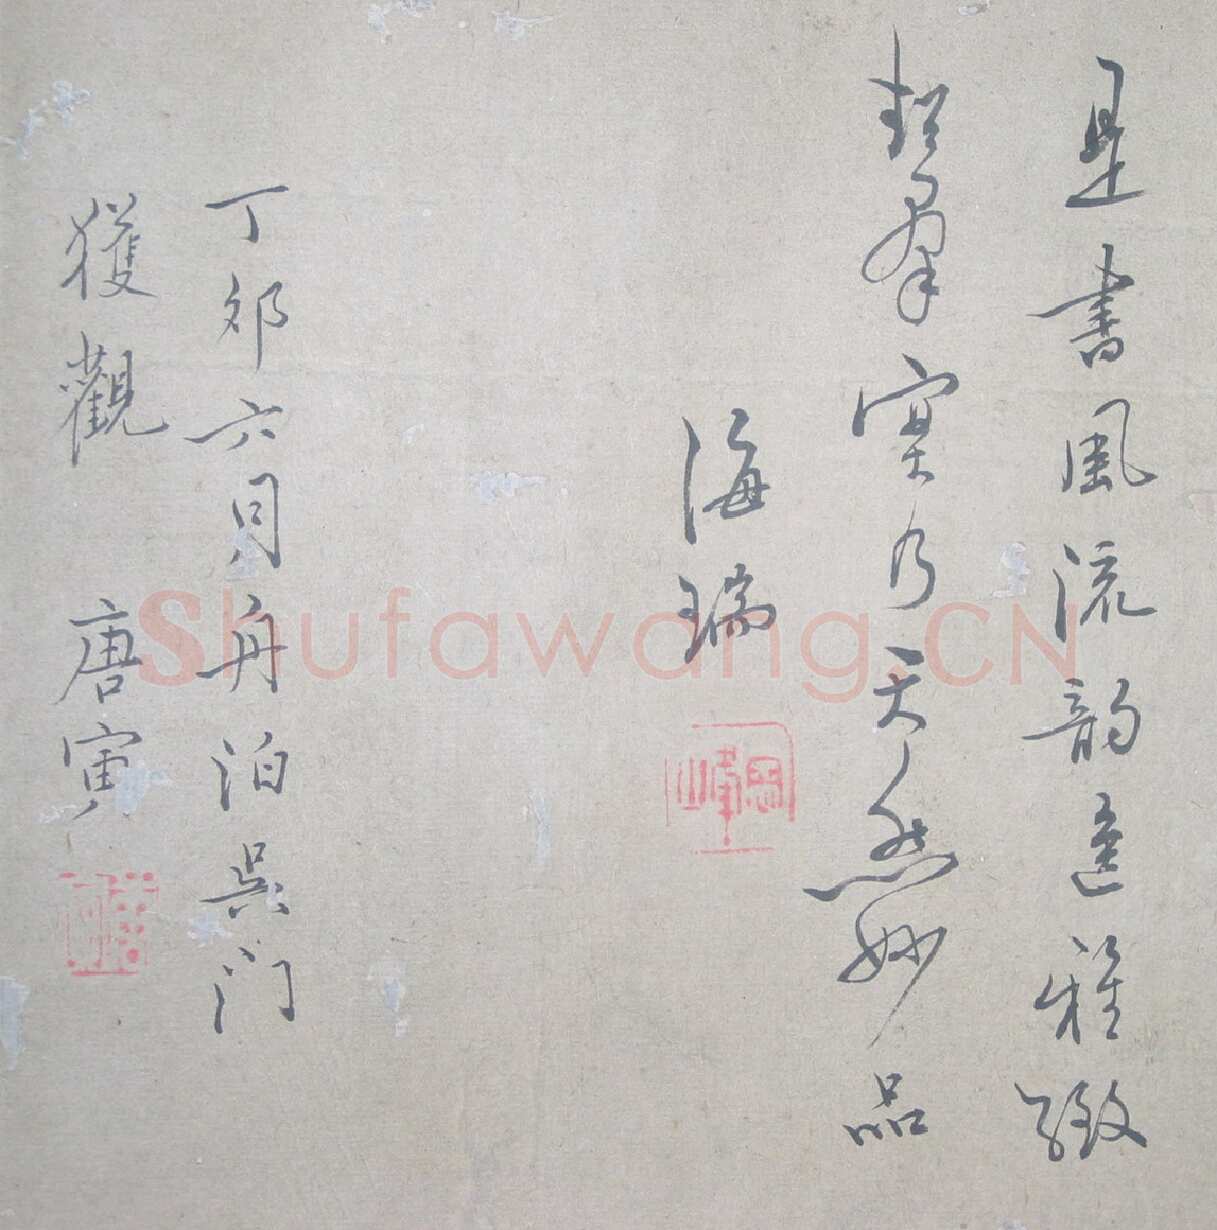 是書風流韵逸雅緻
超羣實乃天然妙品
海瑞
丁卯六月舟泊吳门
獲觀 唐寅
Shufawang.CN